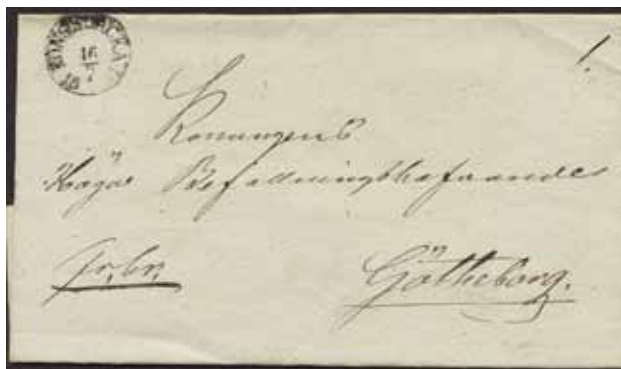 KONGSBACKA
16
7
1.
Konungens
Höga Befallningshafvande
fr. br.
Götheborg.